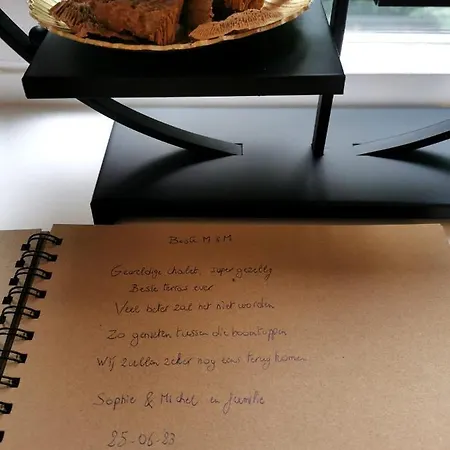 Beste M & M
Geweldige chalet, super gezellig
Beste terras ever
Veel beter zal het niet worden
Zo genieten tussen die boomtoppen
Wij zullen zeker nog eens terug komen
Sophie & Michel en familie
25-06-23